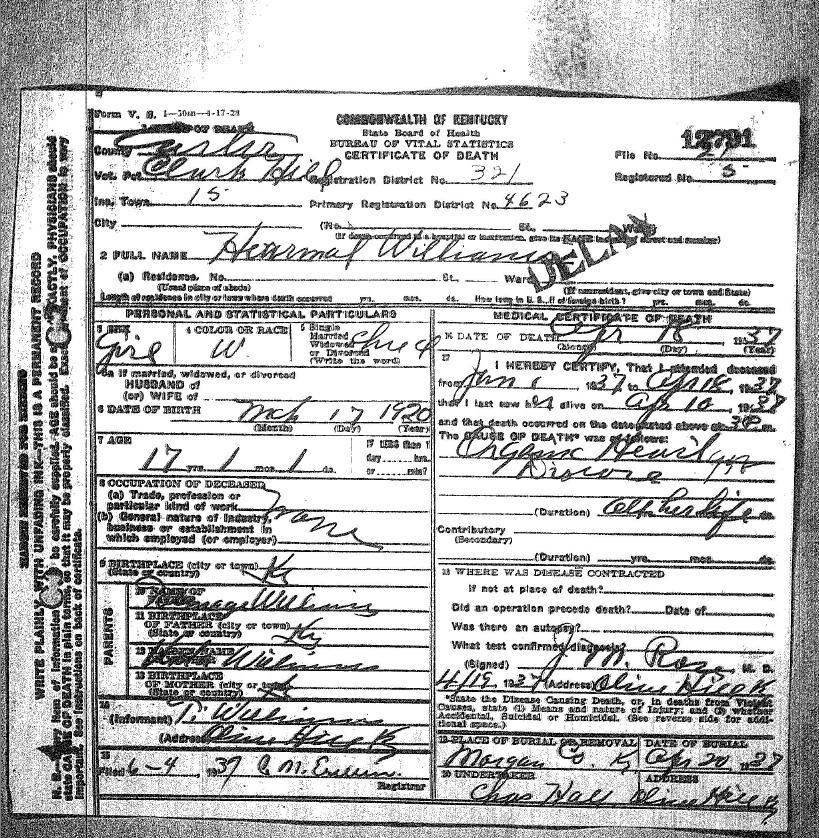 Form V. S. 1—50m—4-17-28
COMMONWEALTH OF KENTUCKY
State Board of Health
BUREAU OF VITAL STATISTICS
CERTIFICATE OF DEATH
PLACE OF DEATH
County Carter
Vot. Pct. Clark Hill Registration District No. 321
Inc. Town 15 Primary Registration District No. 4623
File No. 12791
Registered No. 5
City (No. St. Ward)
(If death occurred in a hospital or institution, give its NAME instead of street and number)
DELAY
2 FULL NAME Williams
(a) Residence. No. St. Ward
(Usual place of abode) (If nonresident, give city or town and State)
Length of residence in city or town where death occurred yrs. mos. ds. How long in U. S., if of foreign birth? yrs. mos. ds.
PERSONAL AND STATISTICAL PARTICULARS
3 SEX Girl
4 COLOR OR RACE W
5 Single
Married
Widowed
or Divorced
(Write the word)
5a If married, widowed, or divorced
HUSBAND of
(or) WIFE of
6 DATE OF BIRTH Mch 17 1920
(Month) (Day) (Year)
7 AGE
17 yrs. 1 mos. 1 ds.
If LESS than 1
day hrs.
or min?
8 OCCUPATION OF DECEASED
(a) Trade, profession or
particular kind of work none
(b) General nature of industry,
business or establishment in
which employed (or employer)
9 BIRTHPLACE (city or town) Ky
(State or country)
PARENTS
10 NAME OF
Williams
11 BIRTHPLACE
OF FATHER (city or town)
(State or country) Ky
12 MAIDEN NAME
Williams
13 BIRTHPLACE
OF MOTHER (city or town)
(State or country)
14
(Informant) T. Williams
(Address) Olive Hill Ky
15
Filed 6-4 1937
Registrar
MEDICAL CERTIFICATE OF DEATH
16 DATE OF DEATH Apr 18 1937
(Month) (Day) (Year)
17
I HEREBY CERTIFY, That I attended deceased
from Jan 1 1937 to Apr 18 1937
that I last saw her alive on Apr 10 1937
and that death occurred on the date stated above at m.
The CAUSE OF DEATH* was as follows:
Organic Heart
Disease
(Duration) All her life ds.
Contributory
(Secondary)
(Duration) yrs. mos. ds.
18 WHERE WAS DISEASE CONTRACTED
If not at place of death?
Did an operation precede death? Date of
Was there an autopsy?
What test confirmed diagnosis?
(Signed) Rose M. D.
4/19 1937 (Address) Olive Hill K
*State the Disease Causing Death, or, in deaths from Violent
Causes, state (1) Means and nature of Injury; and (2) whether
Accidental, Suicidal or Homicidal. (See reverse side for addi-
tional space.)
19 PLACE OF BURIAL OR REMOVAL
Morgan Co. Ky
DATE OF BURIAL
Apr 20 1937
20 UNDERTAKER
Chas Hall
ADDRESS
Olive Hill K
MARGIN RESERVED FOR BINDING
WRITE PLAINLY, WITH UNFADING INK—THIS IS A PERMANENT RECORD